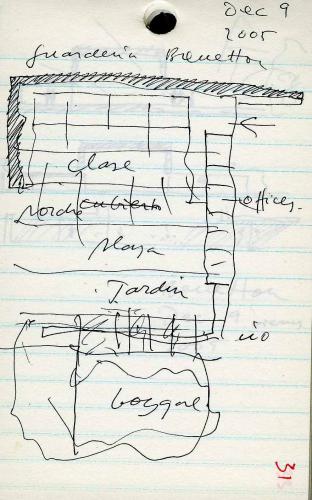 Dec 9
2005
Guarderia Benetton
Clase
cubierto
offices.
Playa
Jardin
rio
bosque
31